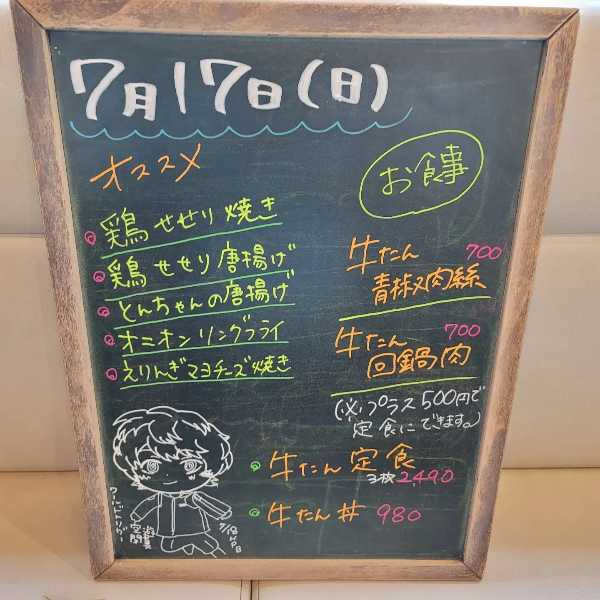 7月17日(日)
オススメ
鶏せせり焼き
鶏せせり唐揚げ
とんちゃんの唐揚げ
オニオンリングフライ
えりんぎマヨチーズ焼き
お食事
牛たん 700
青椒肉絲
牛たん 700
回鍋肉
(※)プラス500円で
定食にできます。)
牛たん定食
3枚2,490
牛たん丼 980
ワールドトリガー
空閑遊真